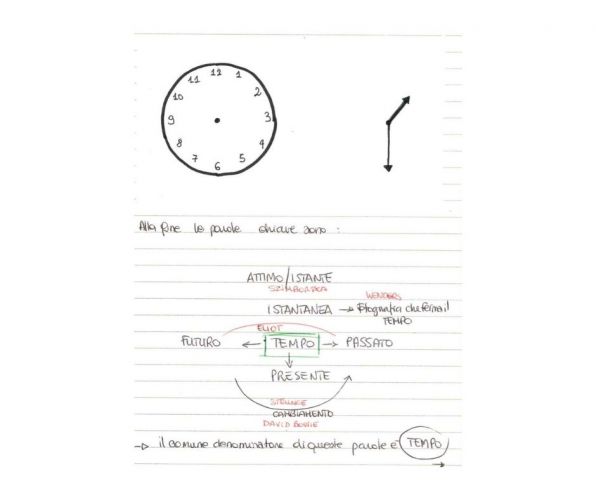 12
11 1
10 2
9 3
8 4
7 5
6
Alla fine le parole chiave sono :
ATTIMO/ISTANTE
SZIMBORSKA
WENDERS
ISTANTANEA → Fotografia che ferma il
TEMPO
ELIOT
FUTURO ← TEMPO → PASSATO
PRESENTE
CAMBIAMENTO
DAVID BOWIE
→ il comune denominatore di queste parole è TEMPO